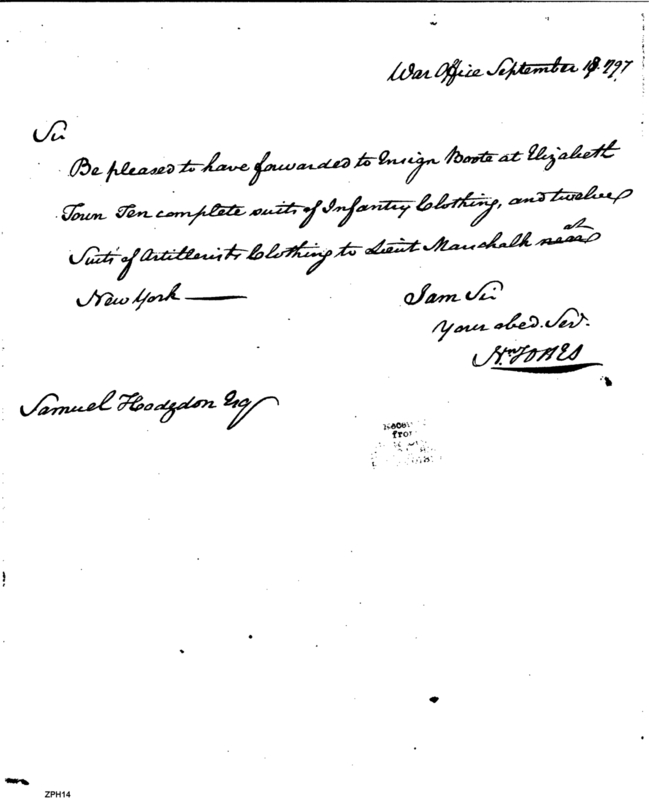 War Office September 18. 1797
Sir
Be pleased to have forwarded to Ensign Boote at Elizabeth
Town Ten complete suits of Infantry Clothing, and twelve
Suits of Artillerists Clothing to Lieut Marschalk near at
New York
I am Sir
Your obed. Ser.
Wm JONES
Samuel Hodgdon Esq
from
ZPH14